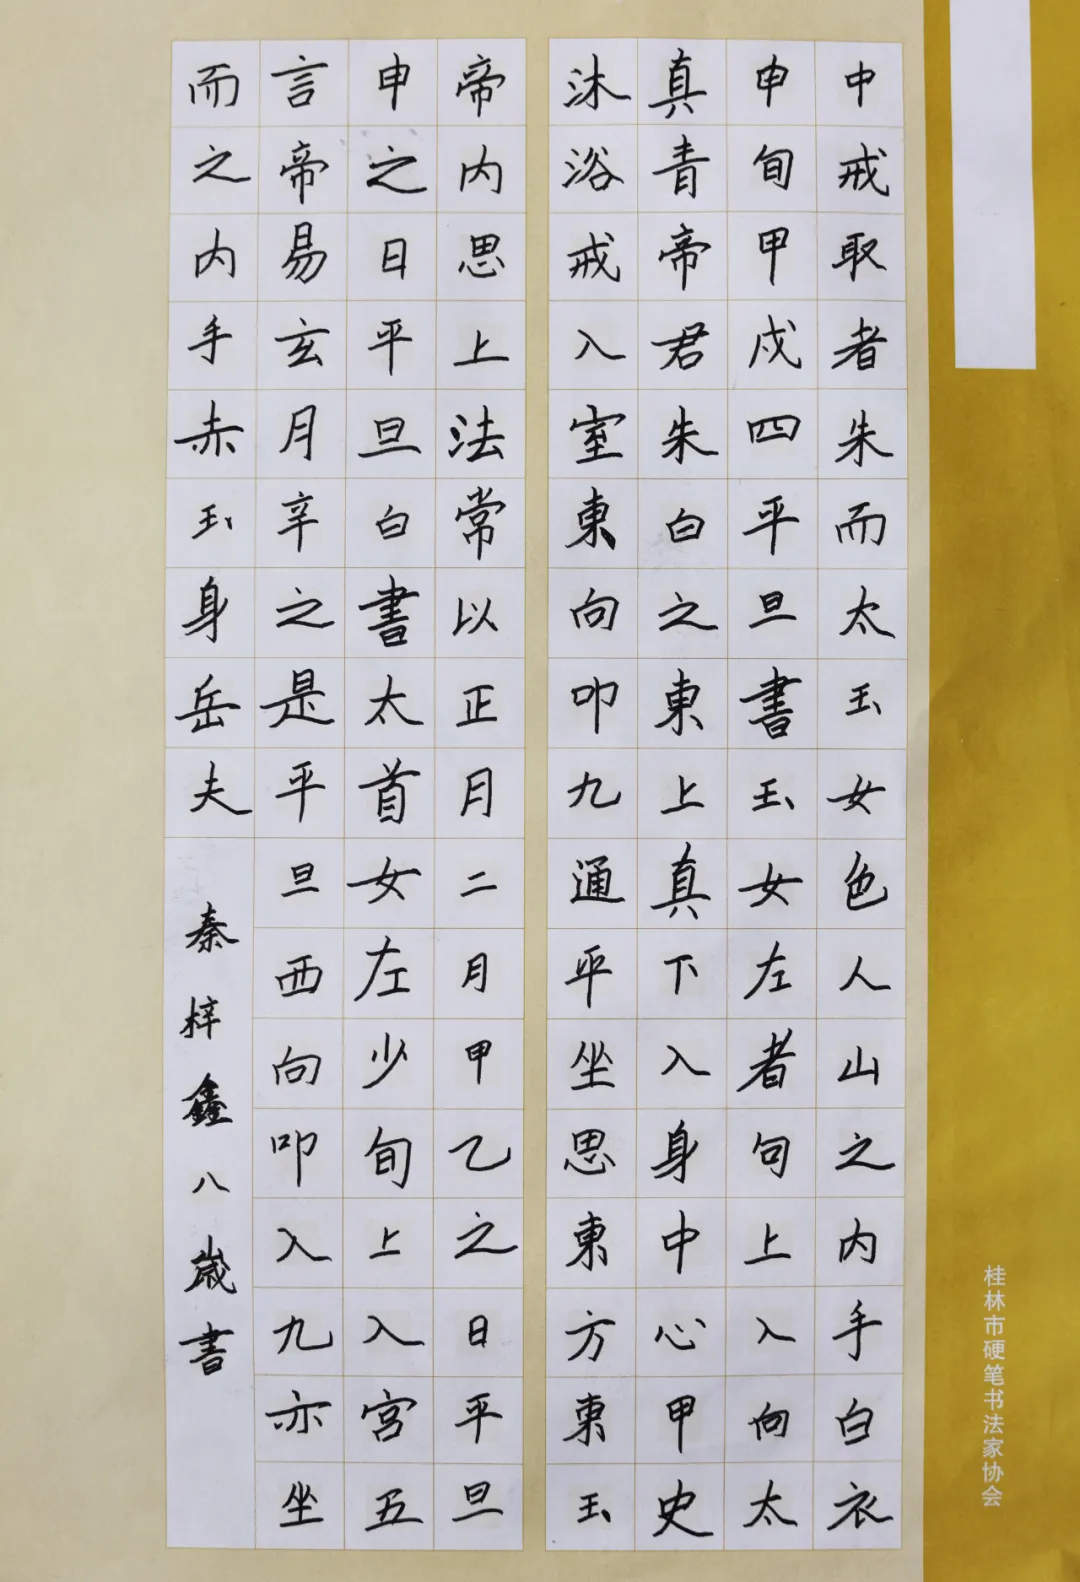 中戒取者朱而太玉女色人山之内手白衣
申旬甲戌四平旦書玉女左者句上入向太
真青帝君朱白之東上真下入身中心甲史
沐浴戒入室東向叩九通平坐思東方東玉
帝内思上法常以正月二月甲乙之日平旦
申之日平旦白書太首女左少旬上入宫五
言帝易玄月辛之是平旦西向叩入九亦坐
而之内手赤玉身岳夫
秦梓鑫八歲書
桂林市硬笔书法家协会